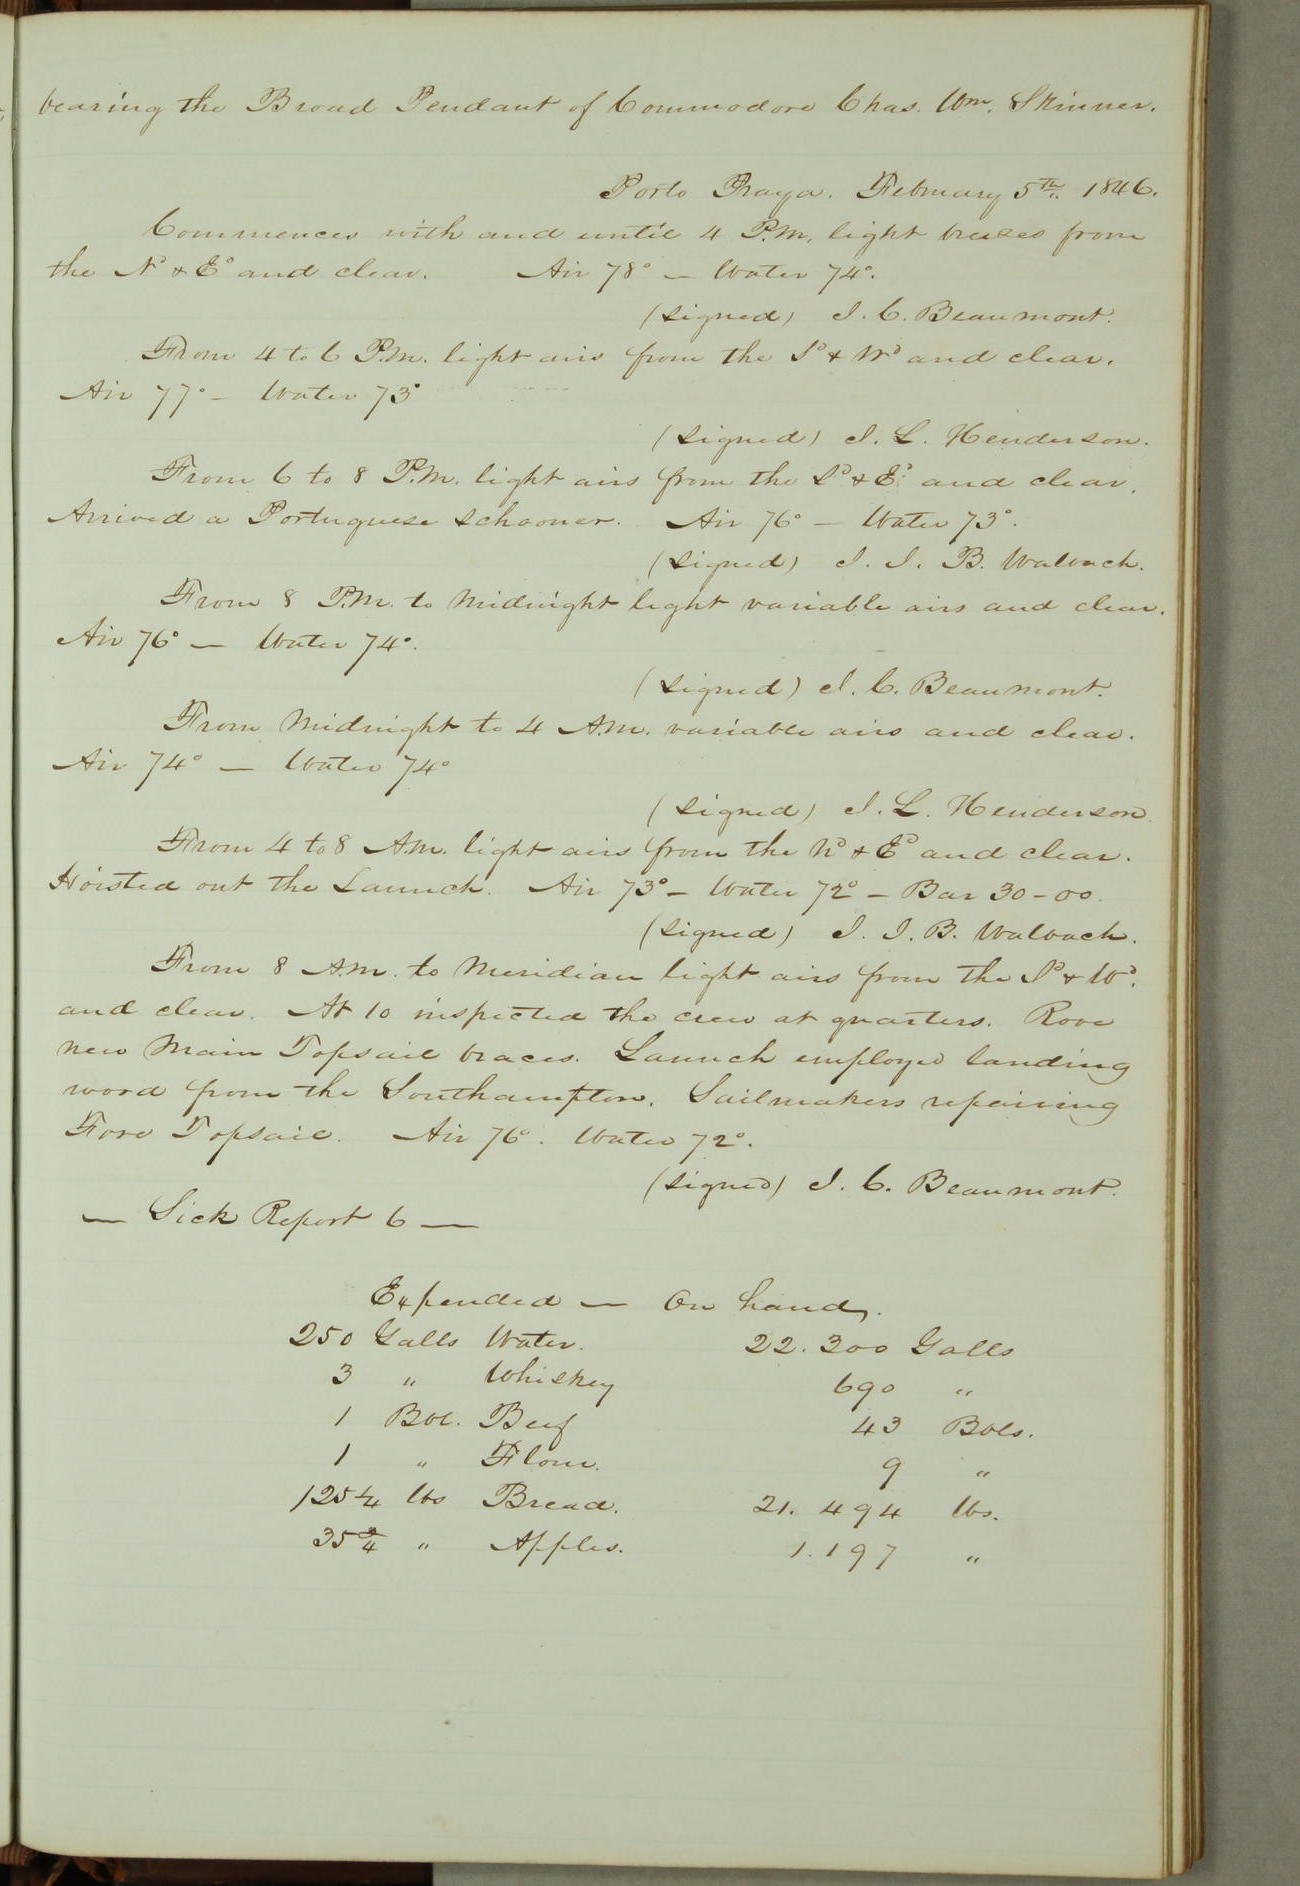 bearing the Broad Pendant of Commodore Chas. Wm. Skinner.
Porto Praya. February 5th. 1846.
Commences with and until 4 P.M. light breezes from
the Nd & Ed and clear. Air 78° — Water 74°.
(signed) J. C. Beaumont.
From 4 to 6 P.M. light airs from the Sd & Wd and clear.
Air 77° — Water 73°
(signed) J. L. Henderson.
From 6 to 8 P.M. light airs from the Sd & Ed and clear.
Arrived a Portuguese schooner. Air 76° — Water 73°.
(signed) J. J. B. Walbach.
From 8 P.M. to Midnight light variable airs and clear.
Air 76° — Water 74°.
(signed) J. C. Beaumont.
From Midnight to 4 A.M. variable airs and clear.
Air 74° — Water 74°
(signed) J. L. Henderson.
From 4 to 8 A.M. light airs from the Nd & Ed and clear.
Hoisted out the Launch. Air 73° — Water 72° — Bar 30-00.
(signed) J. J. B. Walbach.
From 8 A.M. to Meridian light airs from the Sd & Wd.
and clear. At 10 inspected the crew at quarters. Rove
new Main Topsail braces. Launch employed landing
word from the Southampton. Sailmakers repairing
Fore Topsail. Air 76°. Water 72°.
(signed) J. C. Beaumont.
— Sick Report 6 —
Expended — On hand.
250 Galls Water. 22.300 Galls
3 " Whiskey 690 "
1 Bbl. Beef 43 Bbls.
1 " Flour. 9 "
125 1/4 lbs Bread. 21.494 lbs.
35 3/4 " Apples. 1.197 "